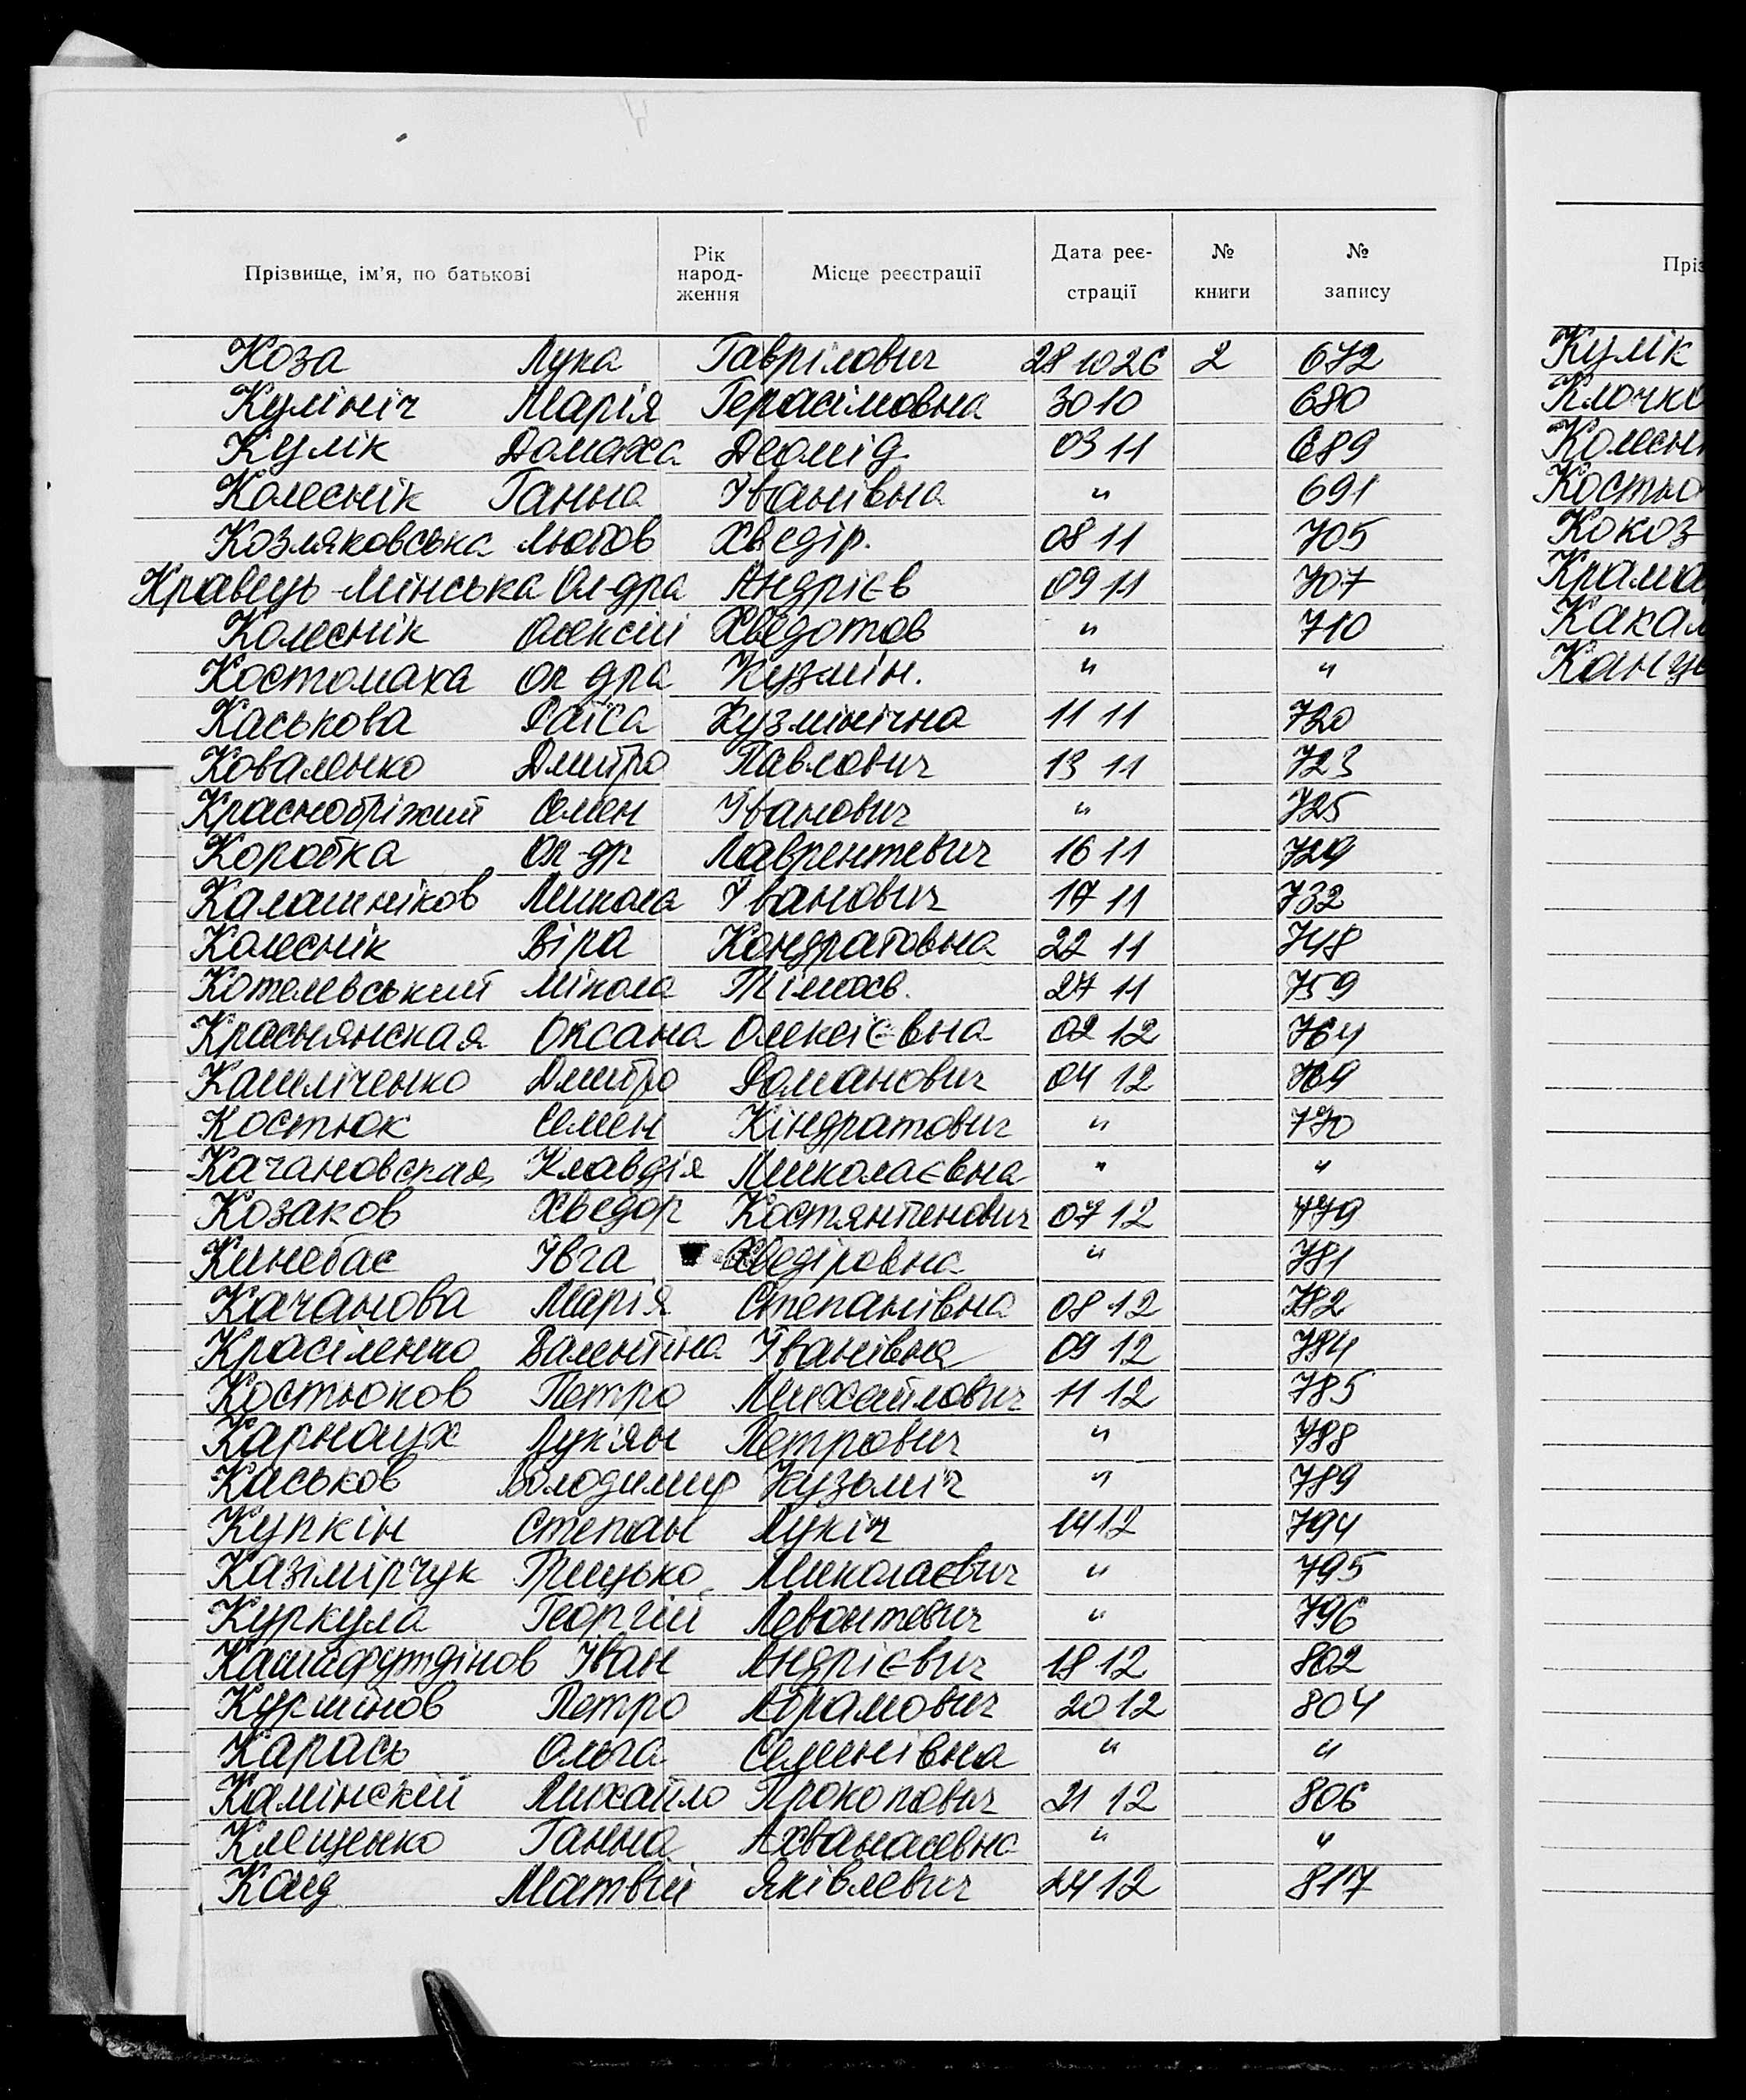 Прізвище, ім'я, по батькові Рік народ-ження Місце реєстрації Дата реє-страції № книги № запису
Коза Лука Гаврілович 28 10 26 2 672
Кулініч Марія Герасімовна 30 10 680
Кулік Домаха Деомід. 03 11 689
Колеснік Ганна Іванівна " 691
Козляковська Любов Хведір. 08 11 705
Кравець-Мінська Ол-дра Андрієв 09 11 707
Колеснік Олексій Хведотов " 710
Костомаха Ол дра Кузмін. " "
Каськова Раїса Кузмінічна 11 11 720
Коваленко Дмитро Павлович 13 11 723
Краснобріжий Семен Іванович " 725
Коробка Ол-др Лаврентевич 16 11 729
Калашніков Микола Іванович 17 11 732
Колеснік Віра Кондратовна 22 11 748
Котелевський Мікола Тімохв. 27 11 759
Краснянская Оксана Олексієвна 02 12 764
Камліченко Дмитро Романович 04 12 769
Костюк Семен Кіндратович " 770
Качановская Клавдія Миколаєвна " "
Козаков Хведор Костянтенович 07 12 779
Кинебас Івга Хведіровна " 781
Качанова Марія Степанівна 08 12 782
Красіленко Валентіна Іванівна 09 12 784
Костюков Петро Михайлович 11 12 785
Карнаух Лук'ян Петрович " 788
Каськов Володимир Кузьміч " 789
Купкін Степан Лукіч 14 12 794
Казімірчук Грицько Миколаєвич " 795
Куркула Георгій Левонтевич " 796
Камайфутдінов Іван Андрієвич 18 12 802
Куршнов Петро Абрамович 20 12 804
Карась Ольга Семенівна " "
Камінскій Михайло Прокопович 21 12 806
Клещенко Ганна Ахванасевна " "
Каяд Матвій Яківлевич 24 12 817
Пріз
Кулік
Клочко
Колесн
Костю
Кокоз
Крама
Какал
Канце